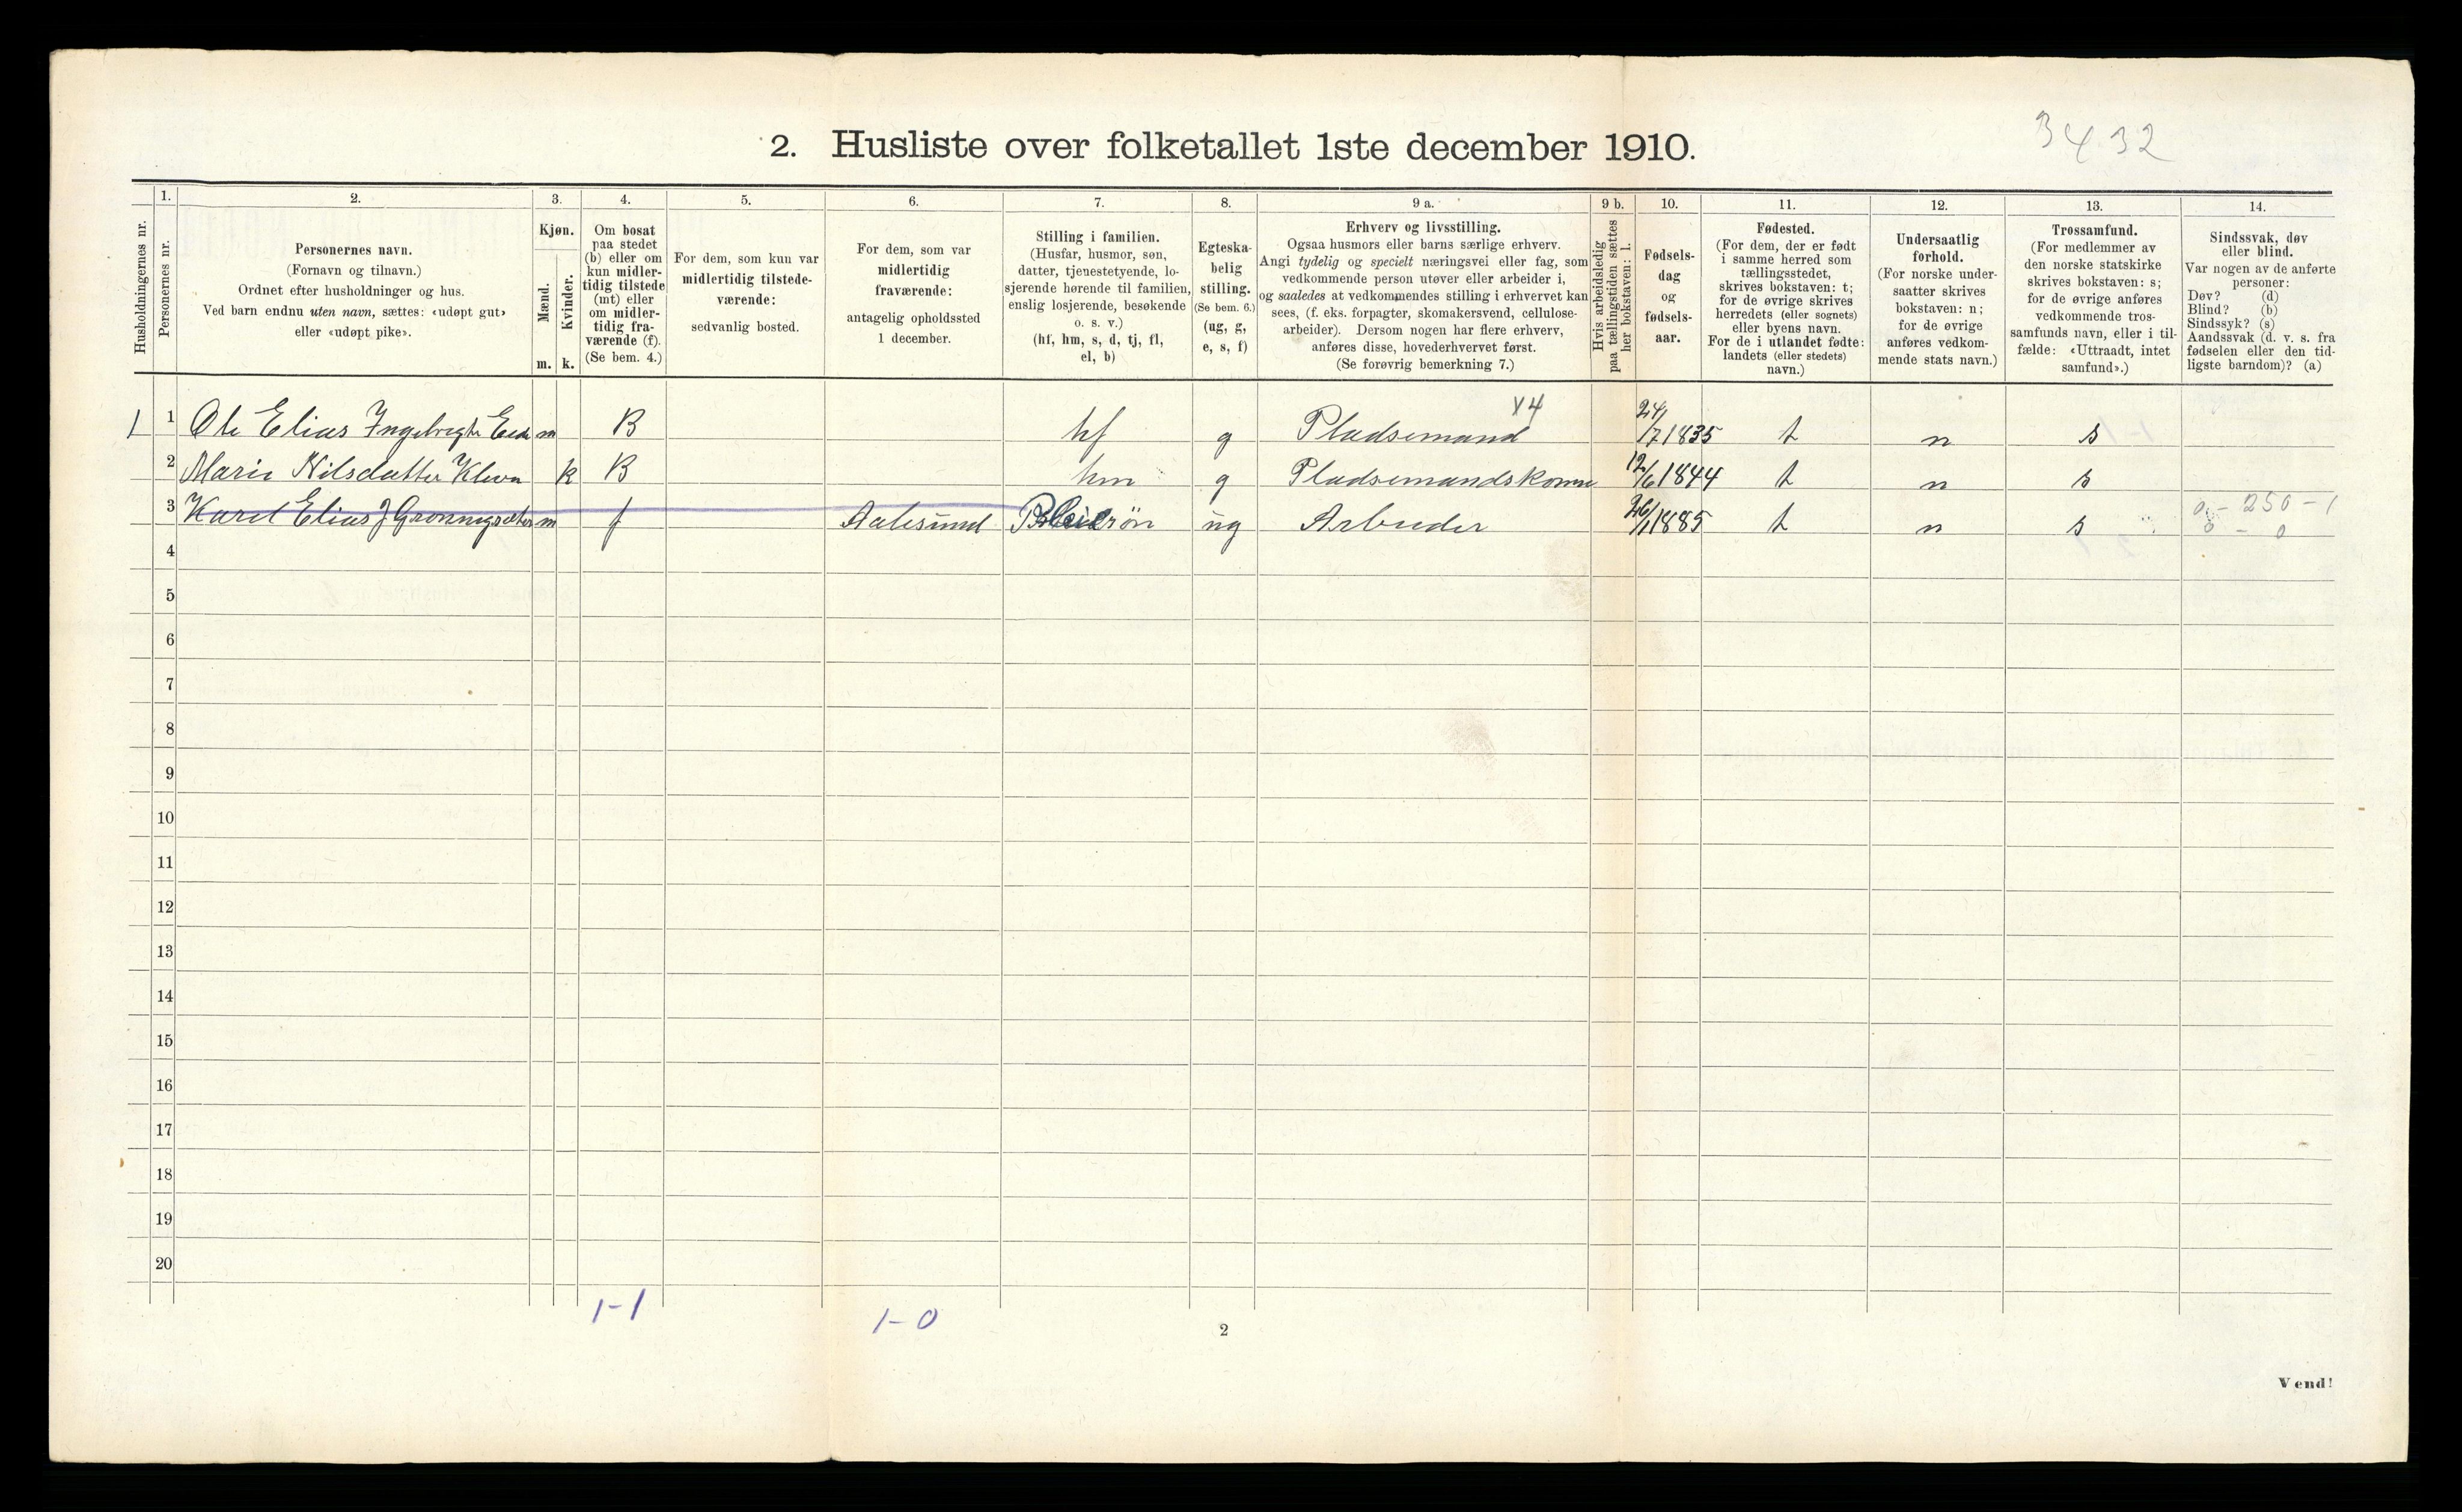 2. Husliste over folketallet 1ste december 1910.
3432
Husholdningernes nr.
1.
Personernes nr.
2.
Personernes navn.
(Fornavn og tilnavn.)
Ordnet efter husholdninger og hus.
Ved barn endnu uten navn, sættes: «udøpt gut»
eller «udøpt pike».
3.
Kjøn.
Mænd.
m.
Kvinder.
k.
4.
Om bosat
paa stedet
(b) eller om
kun midler-
tidig tilstede
(mt) eller
om midler-
tidig fra-
værende (f).
(Se bem. 4.)
5.
For dem, som kun var
midlertidig tilstede-
værende:
sedvanlig bosted.
6.
For dem, som var
midlertidig
fraværende:
antagelig opholdssted
1 december.
7.
Stilling i familien.
(Husfar, husmor, søn,
datter, tjenestetyende, lo-
sjerende hørende til familien,
enslig losjerende, besøkende
o. s. v.)
(hf, hm, s, d, tj, fl,
el, b)
8.
Egteska-
belig
stilling.
(Se bem. 6.)
(ug, g,
e, s, f)
9 a.
Erhverv og livsstilling.
Ogsaa husmors eller barns særlige erhverv.
Angi tydelig og specielt næringsvei eller fag, som
vedkommende person utøver eller arbeider i,
og saaledes at vedkommendes stilling i erhvervet kan
sees, (f. eks. forpagter, skomakersvend, cellulose-
arbeider). Dersom nogen har flere erhverv,
anføres disse, hovederhvervet først.
(Se forøvrig bemerkning 7.)
9 b.
Hvis arbeidsledig
paa tællingstiden sættes
her bokstaven: l.
10.
Fødsels-
dag
og
fødsels-
aar.
11.
Fødested.
(For dem, der er født
i samme herred som
tællingsstedet,
skrives bokstaven: t;
for de øvrige skrives
herredets (eller sognets)
eller byens navn.
For de i utlandet fødte:
landets (eller stedets)
navn.)
12.
Undersaatlig
forhold.
(For norske under-
saatter skrives
bokstaven: n;
for de øvrige
anføres vedkom-
mende stats navn.)
13.
Trossamfund.
(For medlemmer av
den norske statskirke
skrives bokstaven: s;
for de øvrige anføres
vedkommende tros-
samfunds navn, eller i til-
fælde: «Uttraadt, intet
samfund».)
14.
Sindssvak, døv
eller blind.
Var nogen av de anførte
personer:
Døv? (d)
Blind? (b)
Sindssyk? (s)
Aandssvak (d. v. s. fra
fødselen eller den tid-
ligste barndom)? (a)
x4
1 1 Ole Elias Ingebregts m B hf g Pladsemand 24/7 1835 t n s
2 Marie Nilsdatter Kleva k B hm g Pladsemandskone 12/6 1844 t n s
3 Karel Elias J Grønnigsæter m f Aalesund ug Arbeider 26/1 1885 t n s 0 - 250 - 1
0 - 0
4
5
6
7
8
9
10
11
12
13
14
15
16
17
18
19
20
1-1
1-0
2
Vend!